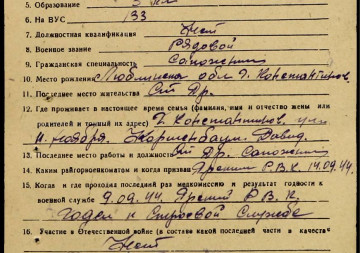 5. Образование 3 кл
6. На ВУС 133
7. Должностная квалификация Нет
8. Военное звание Рядовой
9. Гражданская специальность Сапожник
10. Место рождения Люблинская обл г. Константинов
11. Последнее место жительства
12. Где проживает в настоящее время семья (фамилия, имя и отчество жены или
родителей и точный их адрес) г. Константинов, ул
11. ноября. Давид
13. Последнее место работы и должность Сапожник
14. Каким райгорвоенкоматом и когда призван Ярским Р.В.К. 14.09.44.
15. Когда и где проходил последний раз медкомиссию и результат годности к
военной службе 9.09.44. Ярский Р.В.К.
Годен к строевой службе
16. Участие в Отечественной войне (в составе какой последней части в качестве
Нет